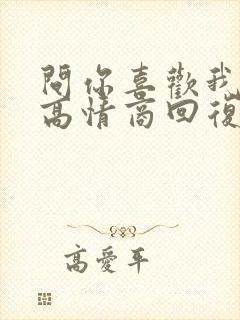 問你喜歡我
高情商回復
高愛平